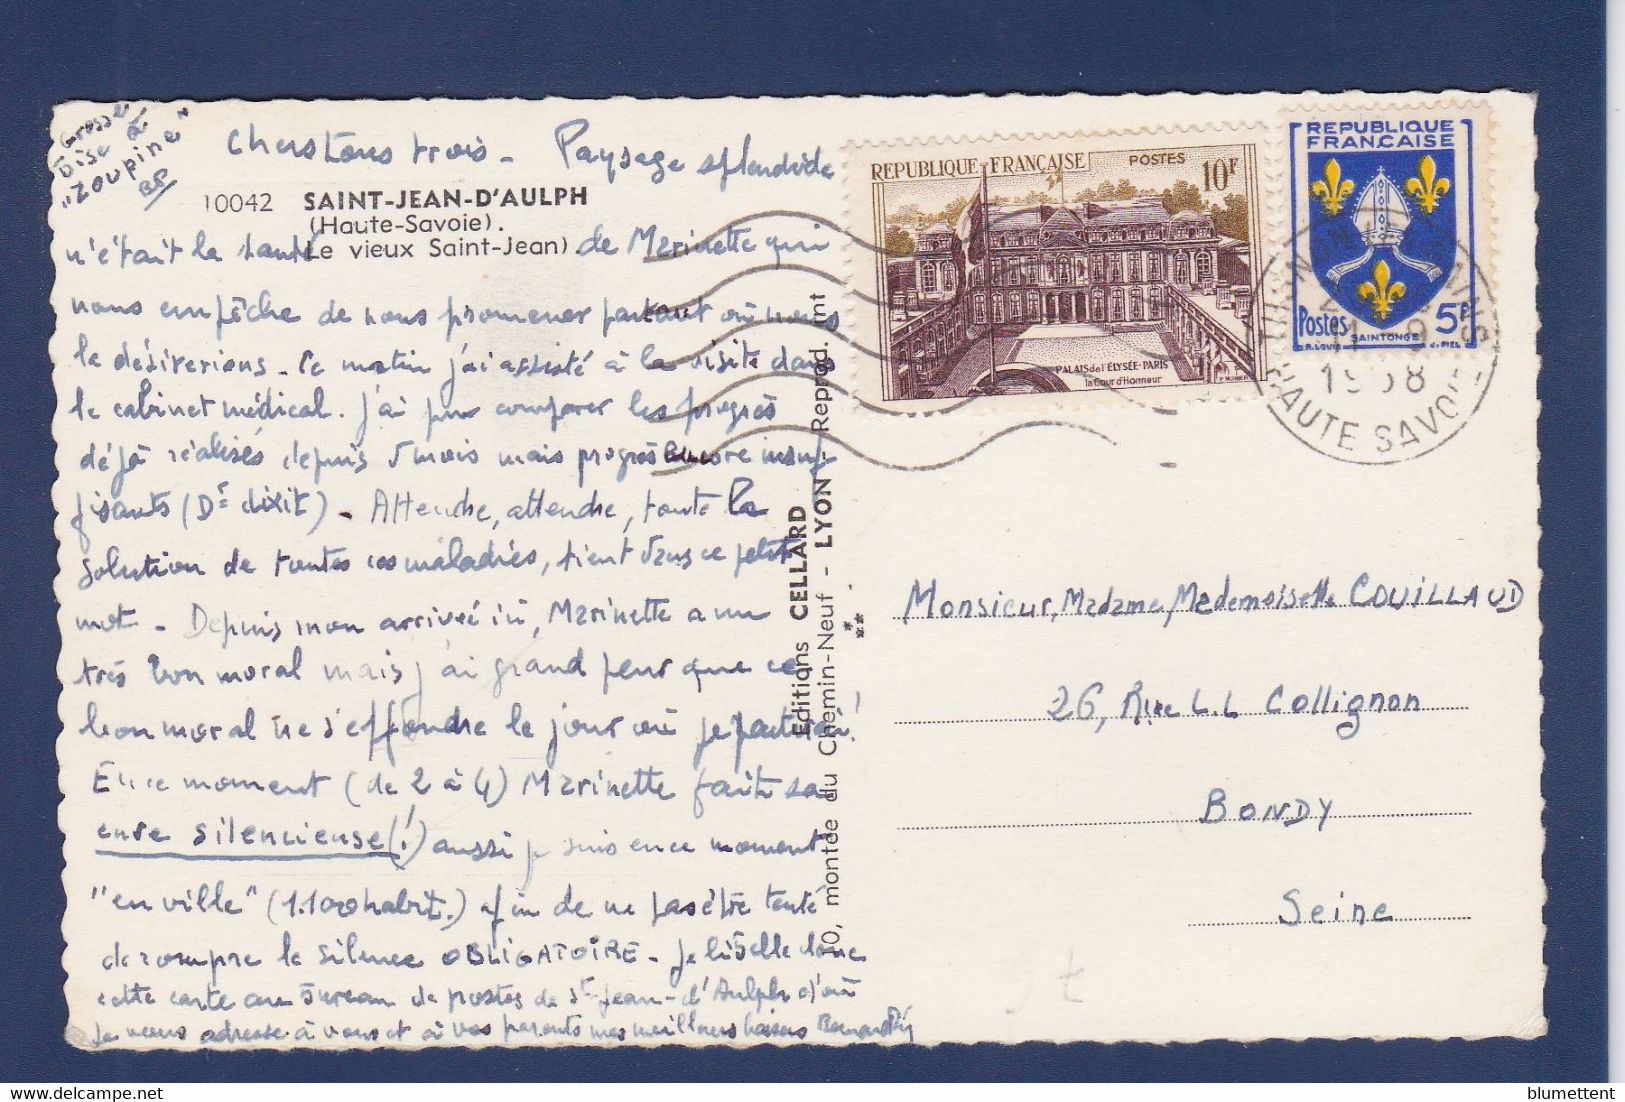 Grosse
bise à
"Zoupine"
BP
Chers tous trois - Paysage splendide
10042 SAINT-JEAN-D'AULPH
(Haute-Savoie).
(Le vieux Saint-Jean)
n'était la santé de Marinette qui
nous empêche de nous promener partout où nous
le désirerions. Ce matin j'ai assisté à la visite dans
le cabinet médical. J'ai pu comparer les progrès
déjà réalisés depuis 5 mois mais progrès encore insuf
fisants (Dr dixit) - Attendre, attendre, toute la
solution de toutes ces maladies, tient dans ce petit
mot - Depuis mon arrivée ici, Marinette a un
très bon moral mais j'ai grand peur que ce
bon moral ne s'effondre le jour où je partirai!
En ce moment (de 2 à 4) Marinette fait sa
cure silencieuse (!) aussi je suis en ce moment
"en ville" (1.100 habit.) afin de ne pas être tenté
de rompre le silence OBLIGATOIRE - Je libelle donc
cette carte au bureau de postes de St Jean-d'Aulph d'où
je vous adresse à vous et à vos parents mes meilleurs baisers
Editions CELLARD
montée du Chemin-Neuf - LYON - Reprod. int
REPUBLIQUE FRANÇAISE POSTES
10F
PALAIS de l'ÉLYSÉE-PARIS
la Cour d'Honneur
REPUBLIQUE
FRANÇAISE
Postes 5F
SAINTONGE
PIEL
HAUTE SAVOIE
Monsieur, Madame, Mademoiselle COUILLAUD
26, Rue L.L Collignon
BONDY
Seine
blumettent